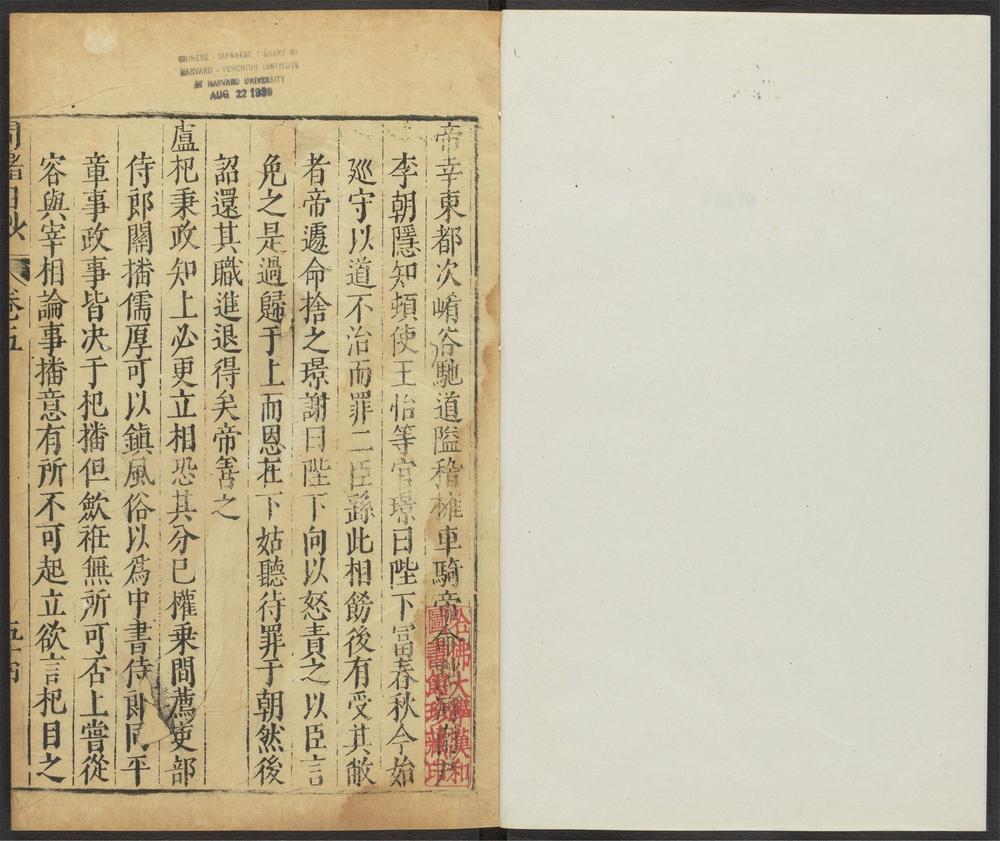 CHINESE - JAPANESE LIBRARY OF
HARVARD - YENCHING INSTITUTE
AT HARVARD UNIVERSITY
AUG 22 1939
帝幸東都次崤谷馳道隘稽擁車騎帝命
李朝隱知頓使王怡等官璟曰陛下富春秋今始
廵守以道不治而罪二臣繇此相飭後有受其敝
者帝遽命捨之璟謝曰陛下向以怒責之以臣言
免之是過歸于上而恩在下姑聽待罪于朝然後
詔還其職進退得矣帝善之
盧杞秉政知上必更立相恐其分已權乗間薦吏部
侍郎關播儒厚可以鎮風俗以爲中書侍郎同平
章事政事皆决于杞播但歛袵無所可否上嘗從
容與宰相論事播意有所不可起立欲言杞目之
日 卷五
哈佛大學漢和
圖書館珍藏印